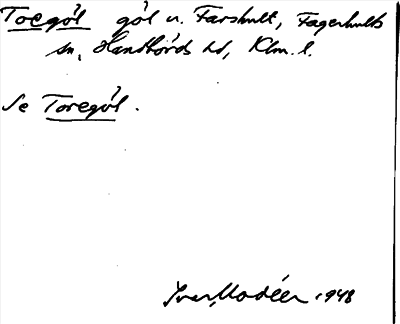 Toegöl göl u. Farshult, Fagerhults
sn, Handbörds hd, Klm. l.
Se Toregöl.
Ivar Modéer 1948